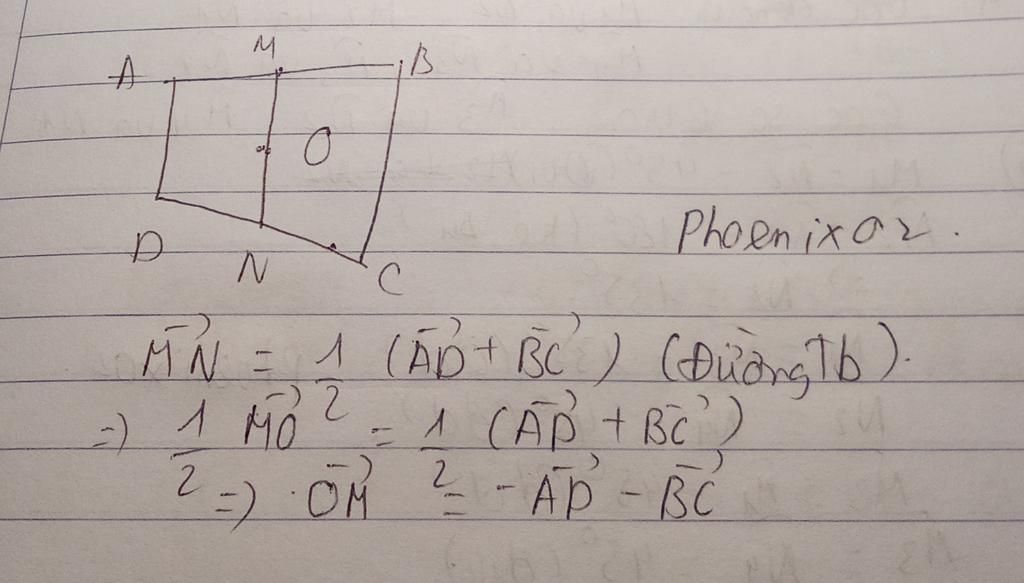 A M B
O
D N C
Phoenix02.
MN⃗ = 1/2 (AD⃗ + BC⃗) (Đường Tb).
=) 1/2 MO⃗ = 1/2 (AD⃗ + BC⃗)
=) OM⃗ = -AD⃗ - BC⃗